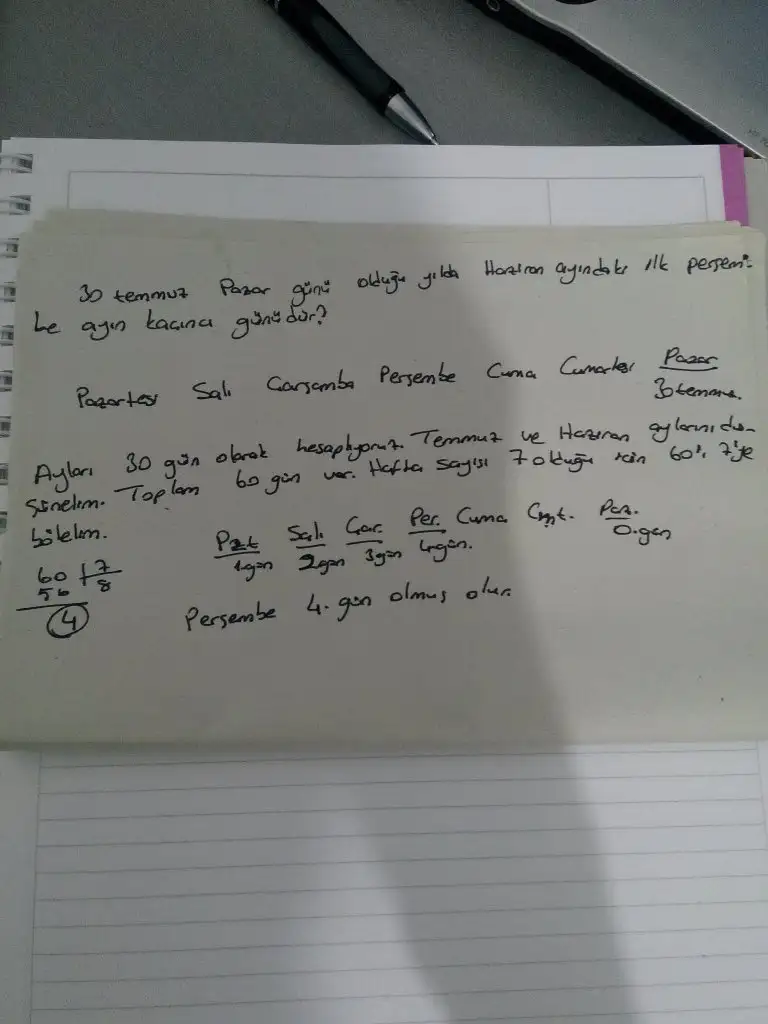 30 temmuz Pazar günü olduğu yılda Haziran ayındaki ilk perşem-
be ayın kaçıncı günüdür?
Pazartesi Salı Çarşamba Perşembe Cuma Cumartesi Pazar
30 temmuz.
Ayları 30 gün olarak hesaplıyoruz. Temmuz ve Haziran aylarını dü-
şünelim. Toplam 60 gün var. Hafta sayısı 7 olduğu için 60'ı 7'ye
bölelim.
Pzt Salı Çar. Per. Cuma Cmt. Paz.
1.gün 2.gün 3.gün 4.gün. 0.gün
60 7
56 8
4
Perşembe 4. gün olmuş olur.